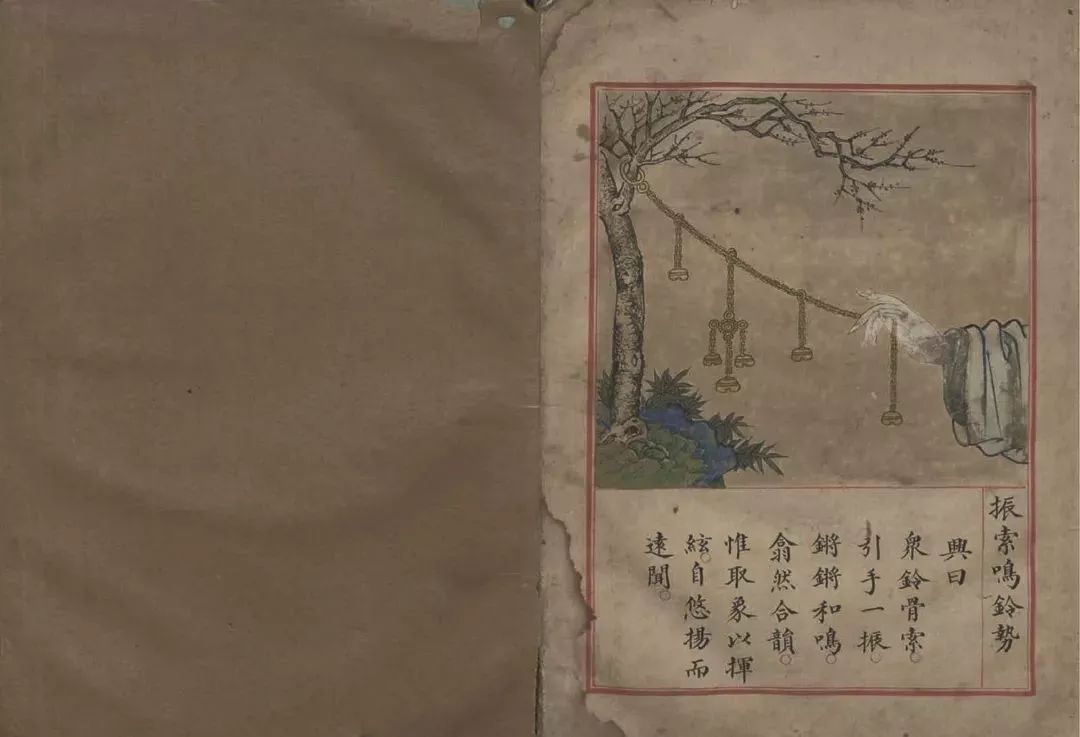 振索鳴鈴勢
興曰
衆鈴骨索。
引手一振。
鏘鏘和鳴。
翕然合韻。
惟取象以揮
絃。自悠揚而
遠聞。